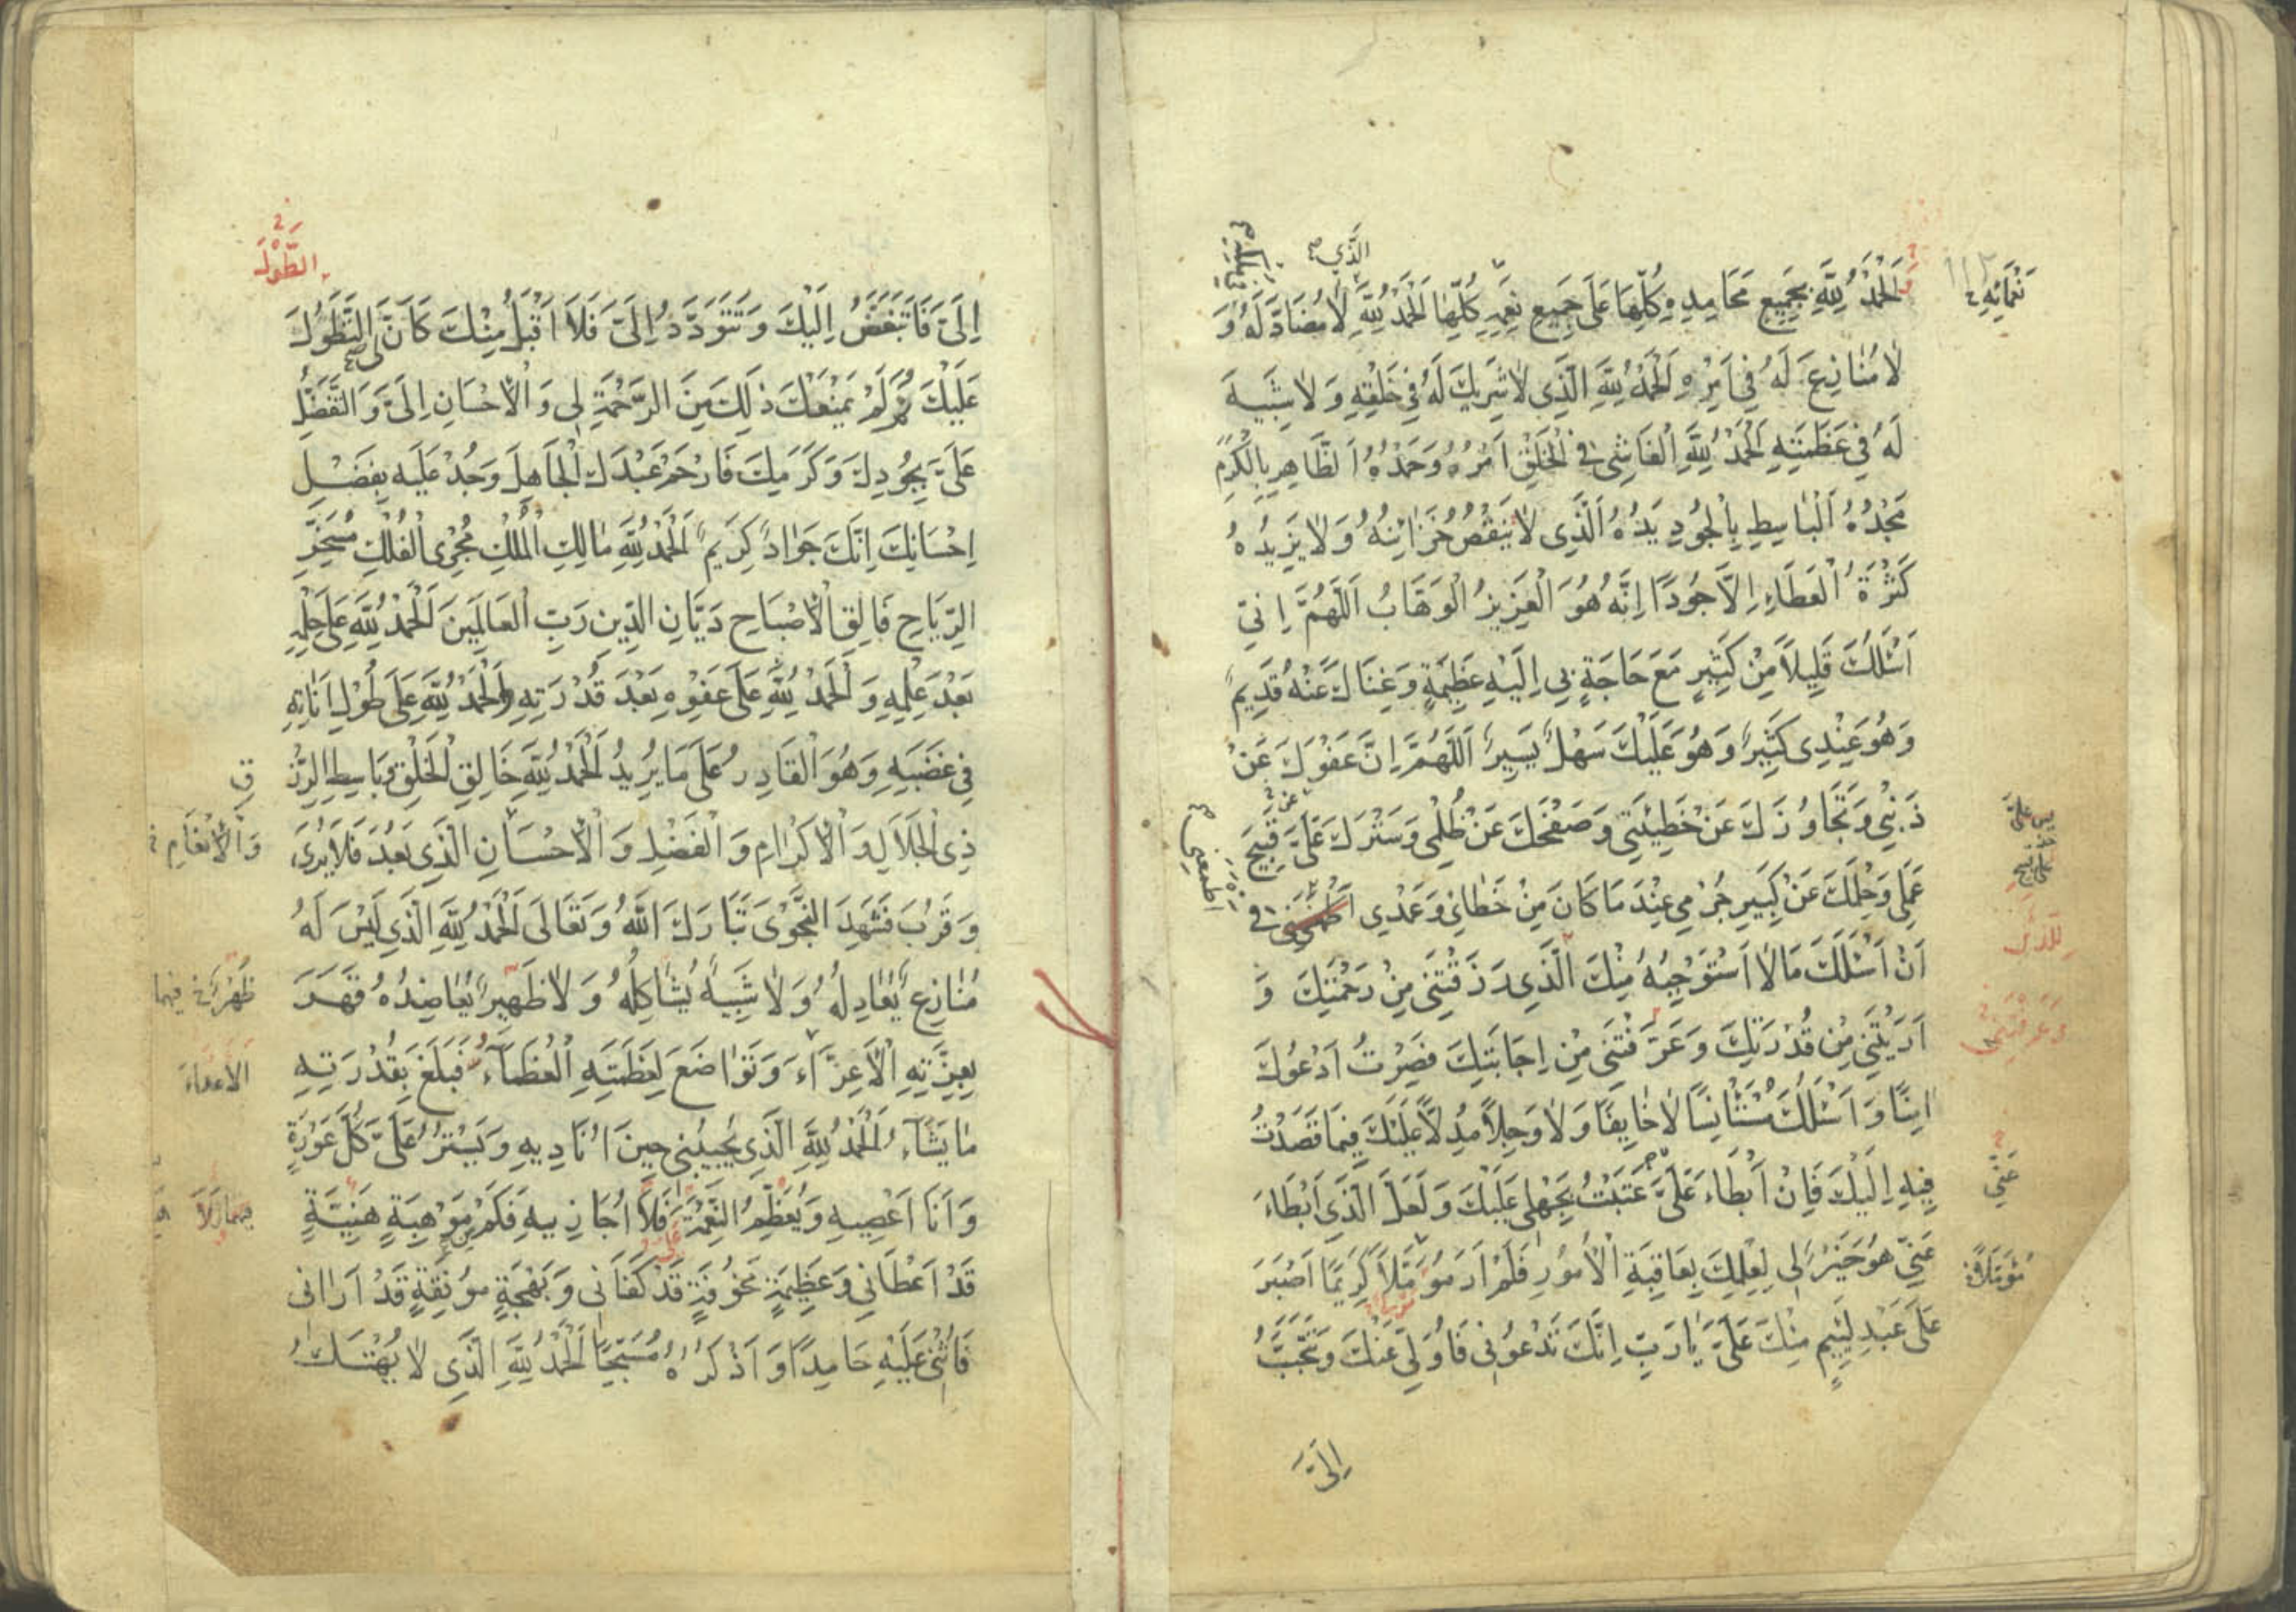 نَعْمَائِهِ
الَّذي
اَلْحَمْدُ لِلّٰهِ بِجَمِيعِ مَحَامِدِهِ كُلِّهَا عَلَى جَمِيعِ نِعَمِهِ كُلِّهَا اَلْحَمْدُ لِلّٰهِ لَا مُضَادَّ لَهُ وَ
لَا مُنَازِعَ لَهُ فِي اَمْرِهِ اَلْحَمْدُ لِلّٰهِ الَّذِي لَا شَرِيكَ لَهُ فِي خَلْقِهِ وَ لَا شَبِيهَ
لَهُ فِي عَظَمَتِهِ اَلْحَمْدُ لِلّٰهِ الْفَاشِي فِي الْخَلْقِ اَمْرُهُ وَحَمْدُهُ الظَّاهِرِ بِالْكَرَمِ
مَجْدُهُ الْبَاسِطِ بِالْجُودِ يَدُهُ الَّذِي لَا يَنْقُصُ خَزَائِنُهُ وَ لَا يَزِيدُهُ
كَثْرَةُ الْعَطَاءِ اِلَّا جُودًا اِنَّهُ هُوَ الْعَزِيزُ الْوَهَّابُ اَللّٰهُمَّ اِنِّي
اَسْئَلُكَ قَلِيلًا مِنْ كَثِيرٍ مَعَ حَاجَةٍ بِي اِلَيْهِ عَظِيمَةٍ وَ غِنَاكَ عَنْهُ قَدِيمٌ
وَ هُوَ عِنْدِي كَثِيرٌ وَ هُوَ عَلَيْكَ سَهْلٌ يَسِيرٌ اَللّٰهُمَّ اِنَّ عَفْوَكَ عَنْ
ذَنْبِي وَ تَجَاوُزَكَ عَنْ خَطِيئَتِي وَ صَفْحَكَ عَنْ ظُلْمِي وَ سَتْرَكَ عَلَيَّ قَبِيحَ
عَمَلِي وَ حِلْمَكَ عَنْ كَبِيرِ جُرْمِي عِنْدَ مَا كَانَ مِنْ خَطَائِي وَ عَمْدِي اَطْمَعَنِي فِي
اَنْ اَسْئَلَكَ مَا لَا اَسْتَوْجِبُهُ مِنْكَ الَّذِي رَزَقْتَنِي مِنْ رَحْمَتِكَ وَ
اَرَيْتَنِي مِنْ قُدْرَتِكَ وَ عَرَّفْتَنِي مِنْ اِجَابَتِكَ فَصِرْتُ اَدْعُوكَ
اٰمِنًا وَ اَسْئَلُكَ مُسْتَأْنِسًا لَا خَائِفًا وَ لَا وَجِلًا مُدِلًّا عَلَيْكَ فِيمَا قَصَدْتُ
فِيهِ اِلَيْكَ فَاِنْ اَبْطَاءَ عَلَيَّ عَتَبْتُ بِجَهْلِي عَلَيْكَ وَ لَعَلَّ الَّذِي اَبْطَاءَ
عَنِّي
عَنِّي هُوَ خَيْرٌ لِي لِعِلْمِكَ بِعَاقِبَةِ الْاُمُورِ فَلَمْ اَرَ مُؤَمَّلًا كَرِيمًا اَصْبَرَ
عَلَى عَبْدٍ لَئِيمٍ مِنْكَ عَلَيَّ يَا رَبِّ اِنَّكَ تَدْعُونِي فَاُوَلِّي عَنْكَ وَ تَتَحَبَّبُ
اِلَيَّ
الطَّوْلَ
اِلَيَّ فَاَتَبَغَّضُ اِلَيْكَ وَ تَتَوَدَّدُ اِلَيَّ فَلَا اَقْبَلُ مِنْكَ كَاَنَّ لِيَ التَّطَوُّلَ
عَلَيْكَ ثُمَّ لَمْ يَمْنَعْكَ ذٰلِكَ مِنَ الرَّحْمَةِ لِي وَ الْاِحْسَانِ اِلَيَّ وَ التَّفَضُّلِ
عَلَيَّ بِجُودِكَ وَ كَرَمِكَ فَارْحَمْ عَبْدَكَ الْجَاهِلَ وَ جُدْ عَلَيْهِ بِفَضْلِ
اِحْسَانِكَ اِنَّكَ جَوَادٌ كَرِيمٌ اَلْحَمْدُ لِلّٰهِ مَالِكِ الْمُلْكِ مُجْرِي الْفُلْكِ مُسَخِّرِ
الرِّيَاحِ فَالِقِ الْاِصْبَاحِ دَيَّانِ الدِّينِ رَبِّ الْعَالَمِينَ اَلْحَمْدُ لِلّٰهِ عَلَى حِلْمِهِ
بَعْدَ عِلْمِهِ وَ الْحَمْدُ لِلّٰهِ عَلَى عَفْوِهِ بَعْدَ قُدْرَتِهِ وَ الْحَمْدُ لِلّٰهِ عَلَى طُولِ اَنَاتِهِ
فِي غَضَبِهِ وَ هُوَ الْقَادِرُ عَلَى مَا يُرِيدُ اَلْحَمْدُ لِلّٰهِ خَالِقِ الْخَلْقِ وَ بَاسِطِ الرِّزْ
قِ
ذِي الْجَلَالِ وَ الْاِكْرَامِ وَ الْفَضْلِ وَ الْاِحْسَانِ الَّذِي بَعُدَ فَلَا يُرَى
وَ الْاِنْعَامِ
وَ قَرُبَ فَشَهِدَ النَّجْوَى تَبَارَكَ اللّٰهُ وَ تَعَالَى اَلْحَمْدُ لِلّٰهِ الَّذِي لَيْسَ لَهُ
مُنَازِعٌ يُعَادِلُهُ وَ لَا شَبِيهٌ يُشَاكِلُهُ وَ لَا ظَهِيرٌ يُعَاضِدُهُ قَهَرَ
بِعِزَّتِهِ الْاَعِزَّاءَ وَ تَوَاضَعَ لِعَظَمَتِهِ الْعُظَمَآءُ فَبَلَغَ بِقُدْرَتِهِ
مَا يَشَآءُ اَلْحَمْدُ لِلّٰهِ الَّذِي يُجِيبُنِي حِينَ اُنَادِيهِ وَ يَسْتُرُ عَلَيَّ كُلَّ عَوْرَةٍ
وَ اَنَا اَعْصِيهِ وَ يُعَظِّمُ النِّعْمَةَ عَلَيَّ فَلَا اُجَازِيهِ فَكَمْ مِنْ مَوْهِبَةٍ هَنِيئَةٍ
قَدْ اَعْطَانِي وَ عَظِيمَةٍ مَخُوفَةٍ قَدْ كَفَانِي وَ بَهْجَةٍ مُونِقَةٍ قَدْ اَرَانِي
فَاُثْنِي عَلَيْهِ حَامِدًا وَ اَذْكُرُهُ مُسَبِّحًا اَلْحَمْدُ لِلّٰهِ الَّذِي لَا يُهْتَكُ